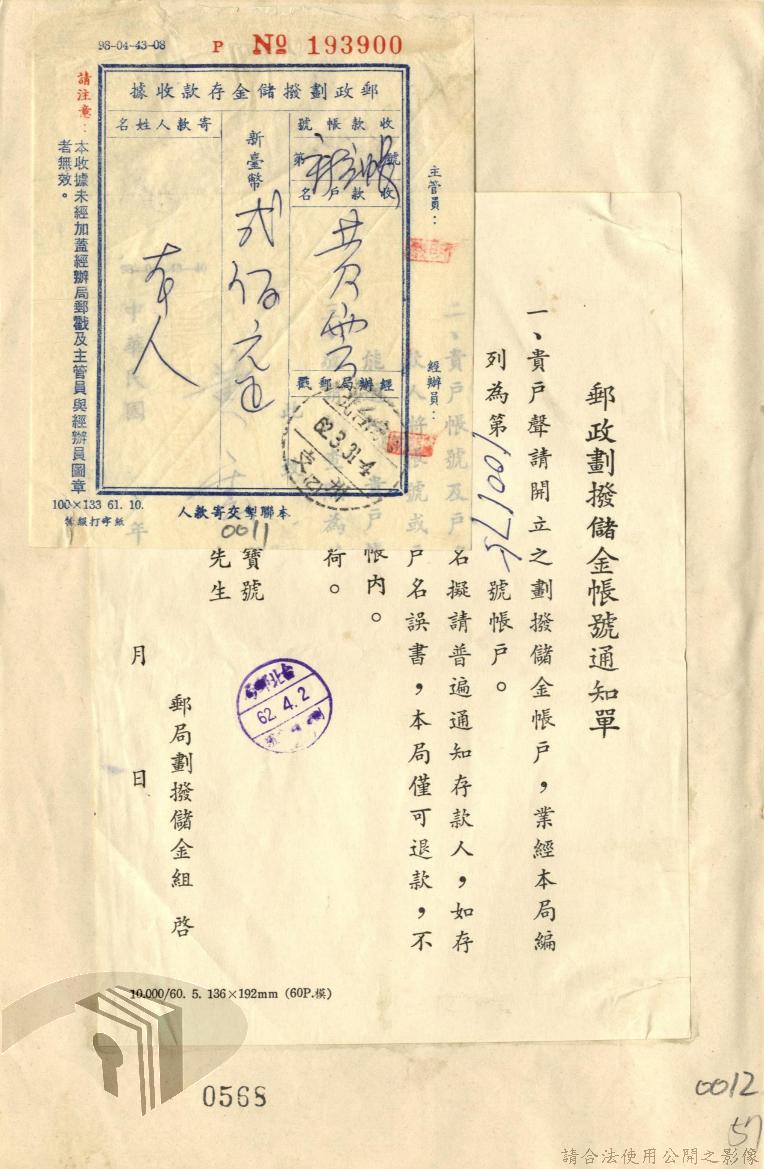 98-04-43-08
P № 193900
郵政劃撥儲金存款收據
收款帳號
第 新立帳 號
收款戶名
黃雲
經辦局郵戳
62.3.31-4
新臺幣
弍佰元正
寄款人姓名
本人
主管員：
經辦員：
請注意：本收據未經加蓋經辦局郵戳及主管員與經辦員圖章
者無效。
100×133 61. 10.
本聯掣交寄款人
0011
郵政劃撥儲金帳號通知單
一、貴戶聲請開立之劃撥儲金帳戶，業經本局編
列為第100175號帳戶。
二、貴戶帳號及戶名擬請普遍通知存款人，如存
款人將帳號或戶名誤書，本局僅可退款，不
能 貴戶帳內。
為荷。
此
寶號
先生
62.4.2
郵局劃撥儲金組 啓
中華民國 年 月 日
10.000/60. 5. 136×192mm (60P.模)
0568
0012
57
請合法使用公開之影像